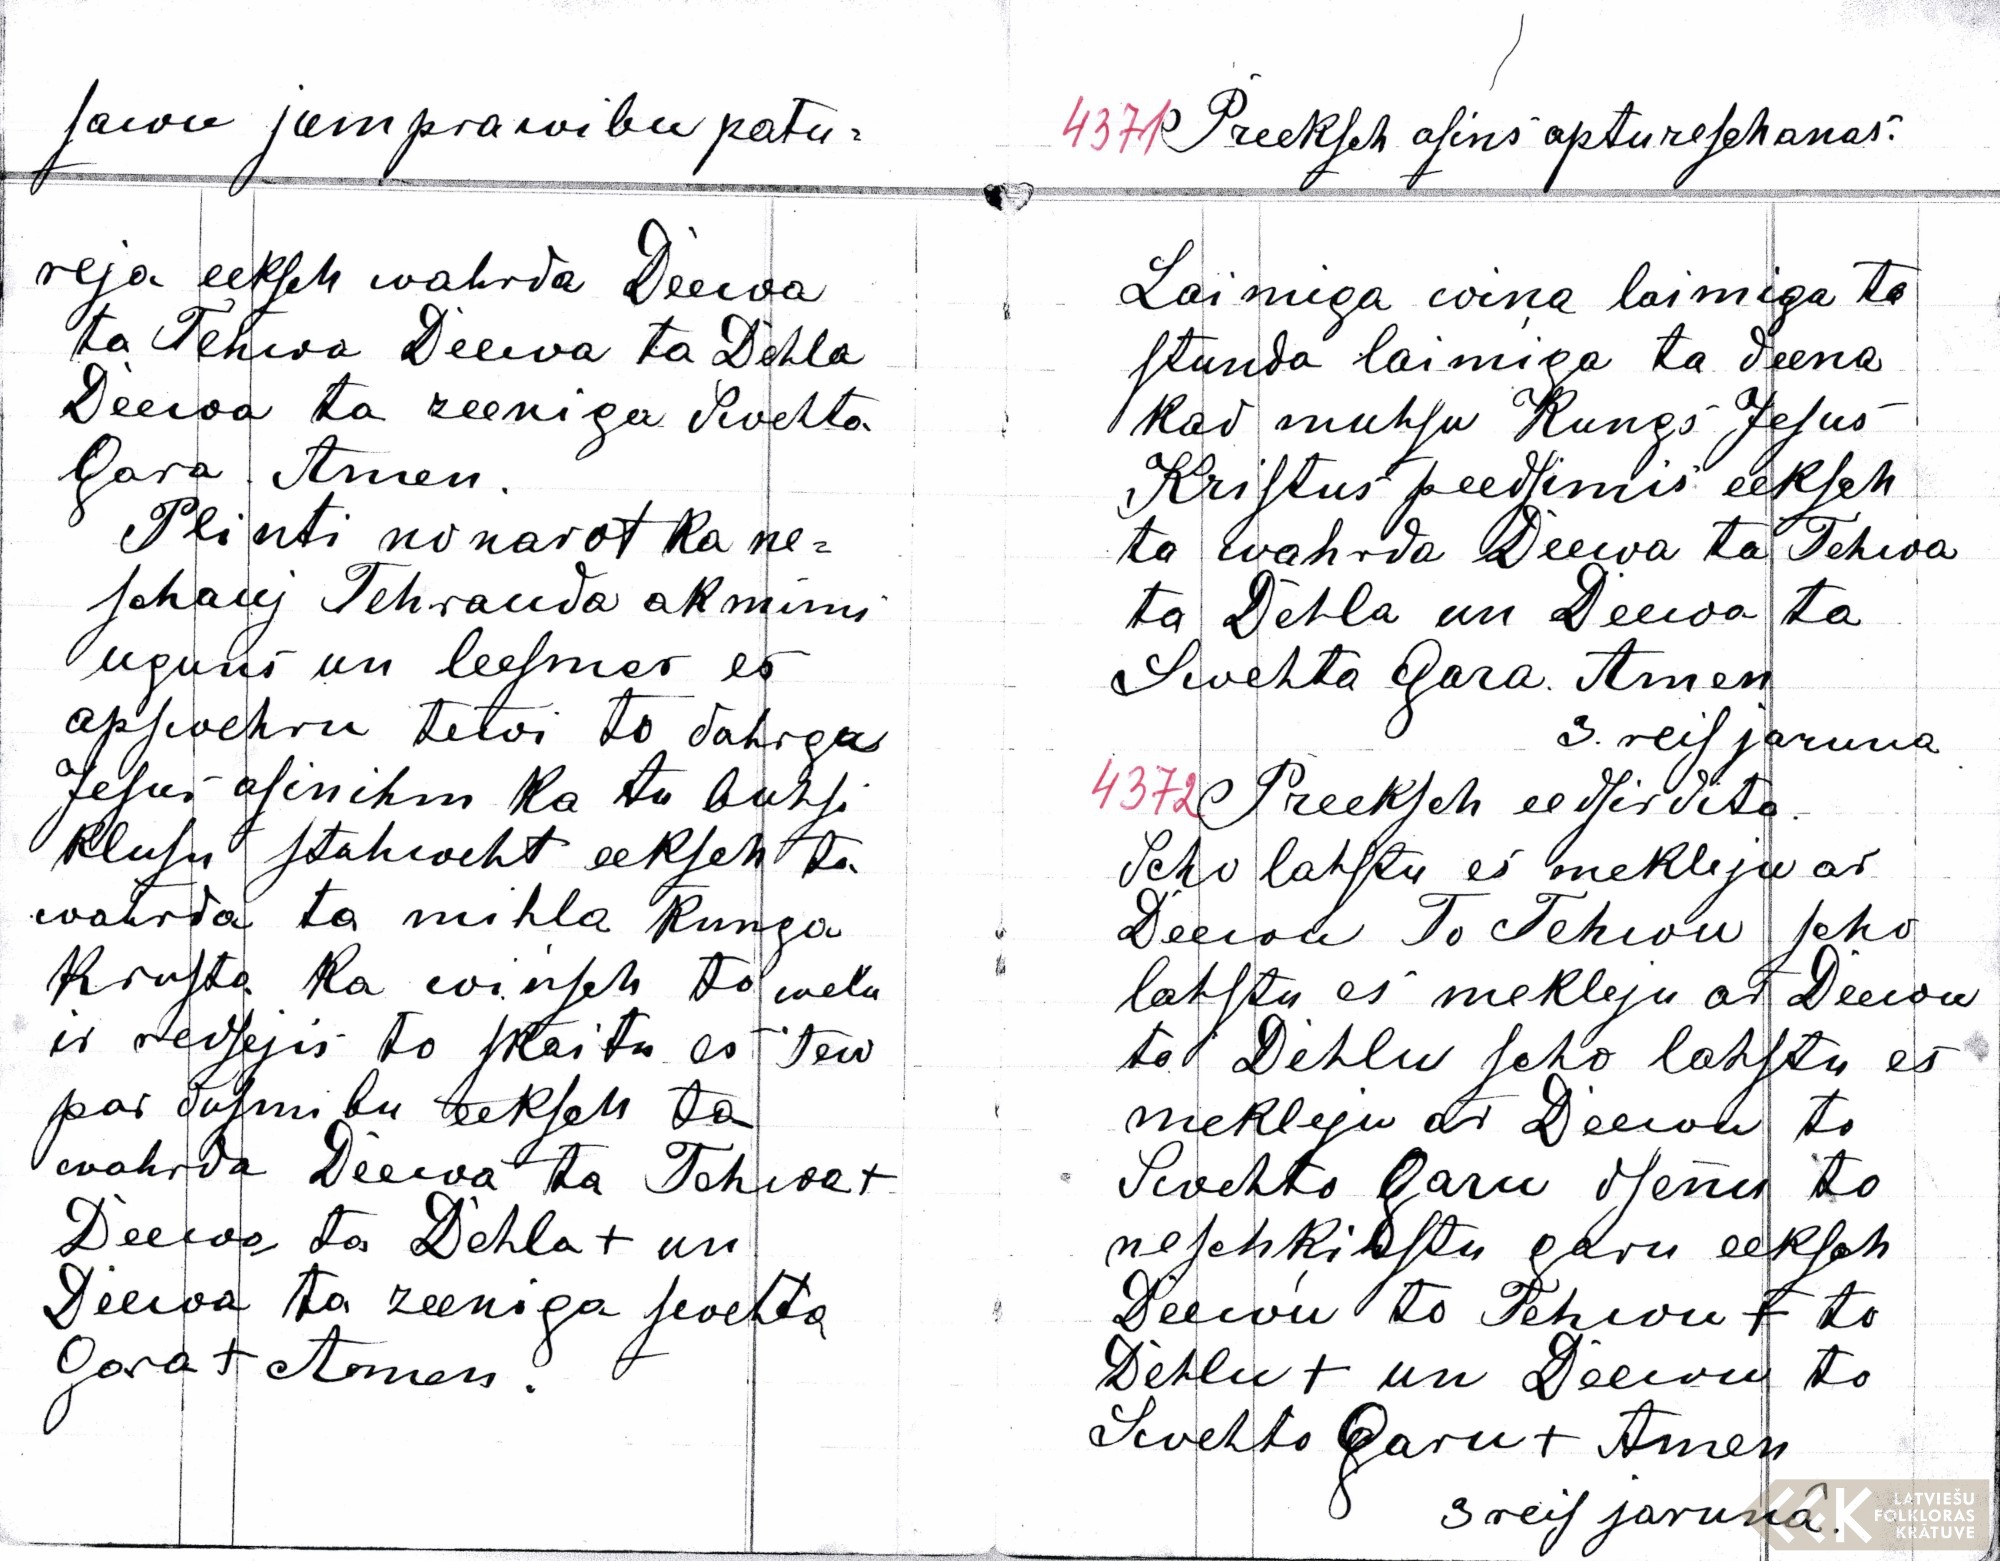 sawu jumprawibu patu=
reja eeksch wahrda Deewa
ta Tehwa Deewa ta Dehla
Deewa ta zeeniga Swehta
Gara. Amen.
Plinti nonarot ka ne=
schauj Tehrauda akmini
uguns un leesmas es
apswehru tewi to dahrgu
Jesus asinihm ka tu buhsi
klusu stahweht eeksch ta
wahrda ta mihla Kunga
Krusta ka winsch to welu
ir redsejis to skaitu es Tew
par dusmibu eeksch ta
wahrda Deewa ta Tehwa +
Deewa ta Dehla + un
Deewa ta zeeniga swehta
Gara + Amen.
4371 Preeksch asins aptureschanas.
Laimiga wiņa laimiga ta
stunda laimiga ta deena
kad muhsu Kungs Jesus
Kristus peedsimis eeksch
ta wahrda Deewa ta Tehwa
ta Dehla un Deewa ta
Swehta Gara. Amen
3. reis jaruna
4372 Preeksch eedsirdita.
Scho lahstu es mekleju ar
Deewu To Tehwu scho
lahstu es mekleju ar Deewu
to Dehlu scho lahstu es
mekleju ar Deewu to
Swehto Garu dsennu to
neschkihstu garu eeksch
Deewu to Tehwu + to
Dehlu + un Deewu to
Swehto Garu + Amen
3 reis jarunâ.
LATVIEŠU
FOLKLORAS
KRĀTUVE